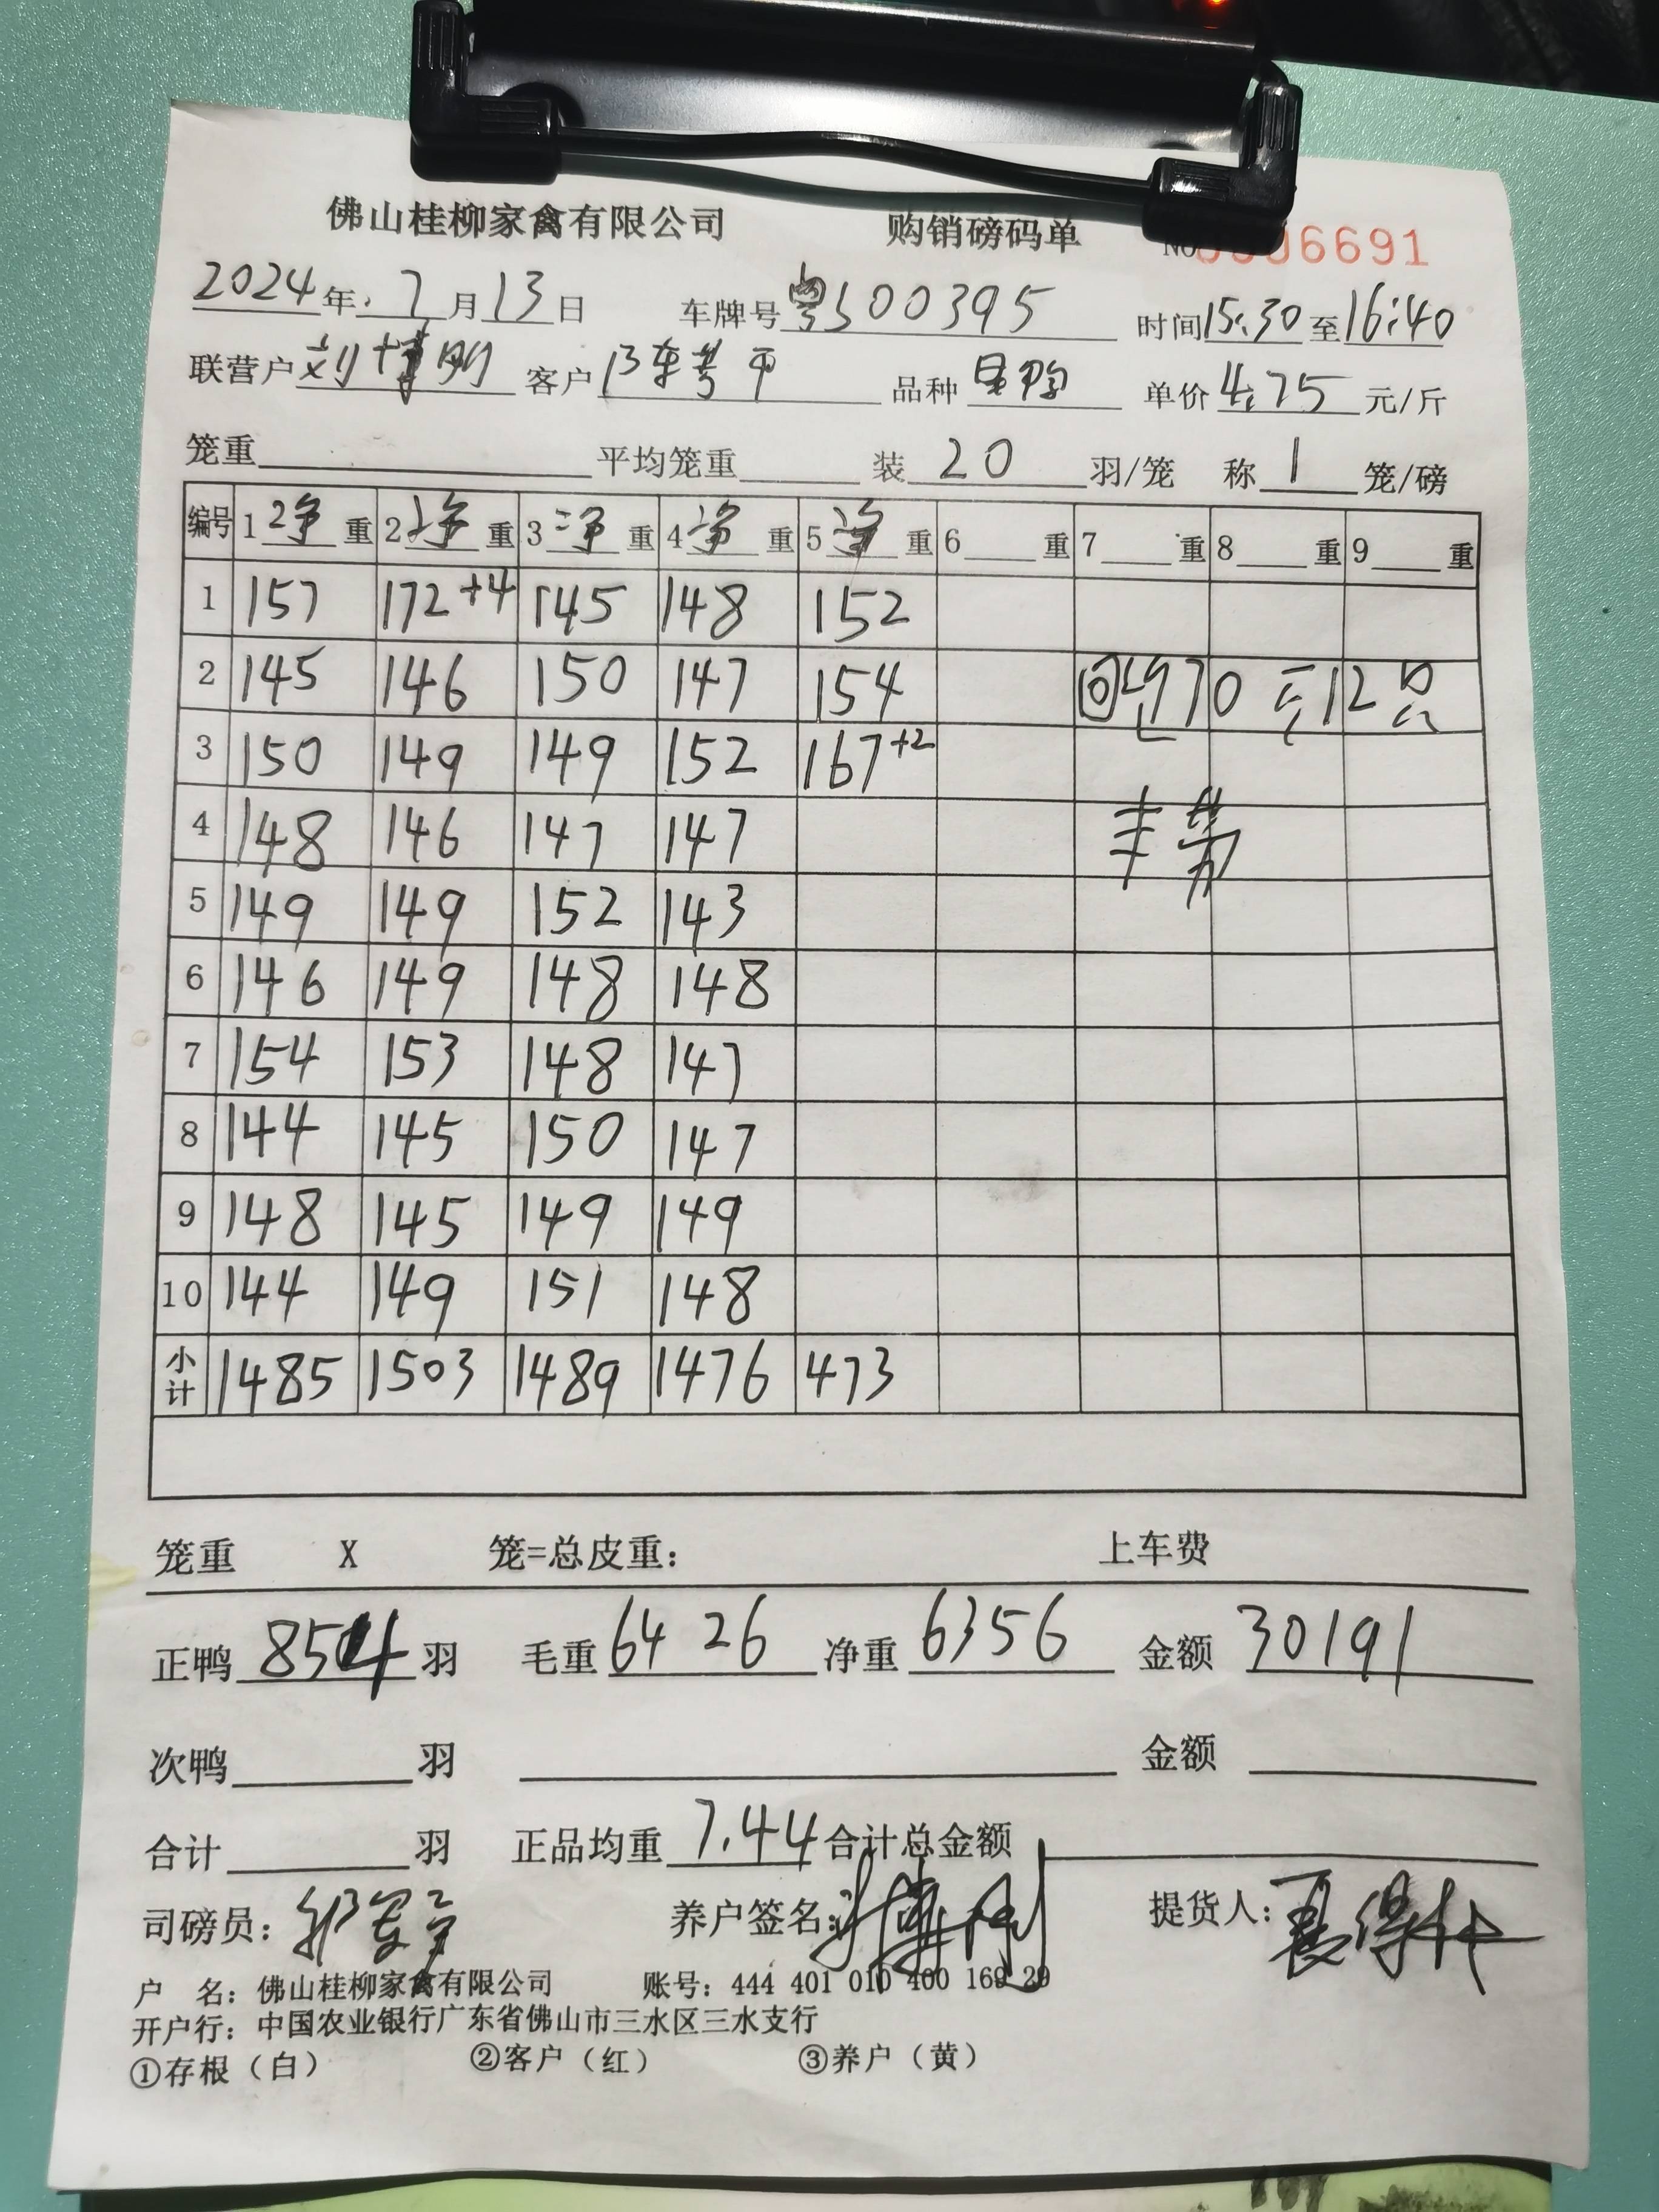 佛山桂柳家禽有限公司 购销磅码单 No 6691
2024年 7月13日 车牌号 粤S00395 时间15:30至16:40
联营户 刘博刚 客户 品种 单价4.75元/斤
笼重 平均笼重 装20羽/笼 称1笼/磅
编号 1净重 2净重 3净重 4净重 5净重 6重 7重 8重 9重
1 157 172+4 145 148 152
2 145 146 150 147 154 回 70 12只
3 150 149 149 152 167+2
4 148 146 147 147
5 149 149 152 143
6 146 149 148 148
7 154 153 148 147
8 144 145 150 147
9 148 145 149 149
10 144 149 151 148
小计 1485 1503 1489 1476 473
笼重 X 笼=总皮重: 上车费
正鸭 854 羽 毛重 6426 净重 6356 金额 30191
次鸭 羽 金额
合计 羽 正品均重 7.44 合计总金额
司磅员: 养户签名: 提货人:
户 名: 佛山桂柳家禽有限公司 账号: 444 401 010 400 169 29
开户行: 中国农业银行广东省佛山市三水区三水支行
①存根(白) ②客户(红) ③养户(黄)